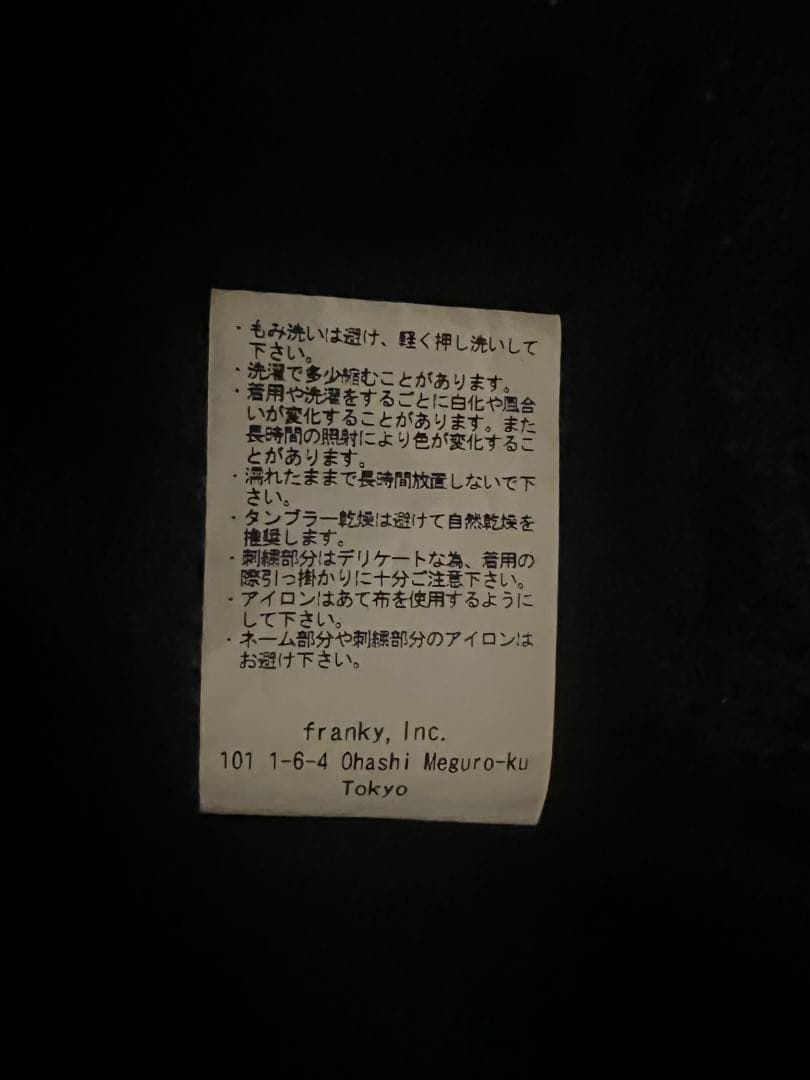 ・もみ洗いは避け、軽く押し洗いして
下さい。
・洗濯で多少縮むことがあります。
・着用や洗濯をするごとに白化や風合
いが変化することがあります。また
長時間の照射により色が変化するこ
とがあります。
・濡れたままで長時間放置しないで下
さい。
・タンブラー乾燥は避けて自然乾燥を
推奨します。
・刺繍部分はデリケートな為、着用の
際引っ掛かりに十分ご注意下さい。
・アイロンはあて布を使用するように
して下さい。
・ネーム部分や刺繍部分のアイロンは
お避け下さい。
franky, Inc.
101 1-6-4 Ohashi Meguro-ku
Tokyo